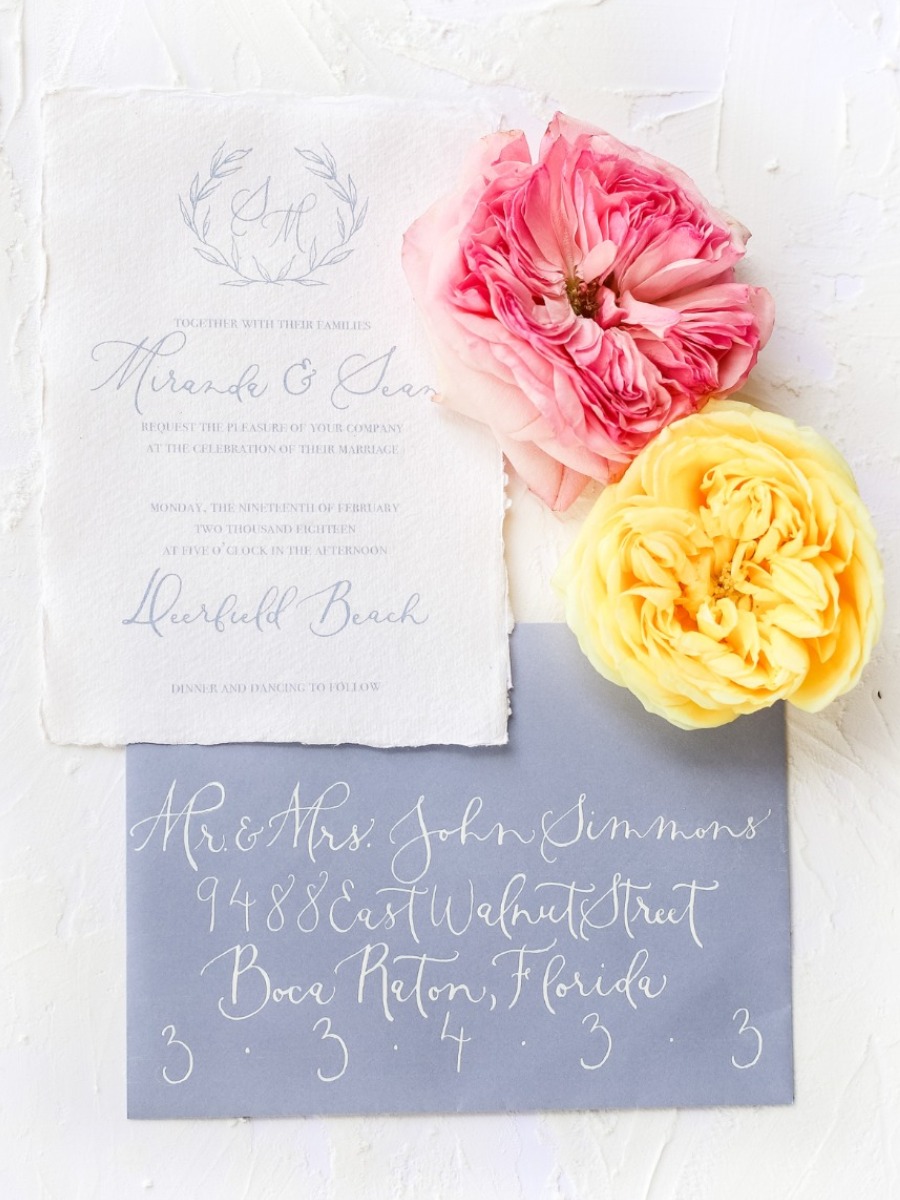 S M
TOGETHER WITH THEIR FAMILIES
Miranda & Sean
REQUEST THE PLEASURE OF YOUR COMPANY
AT THE CELEBRATION OF THEIR MARRIAGE
MONDAY, THE NINETEENTH OF FEBRUARY
TWO THOUSAND EIGHTEEN
AT FIVE O'CLOCK IN THE AFTERNOON
Deerfield Beach
DINNER AND DANCING TO FOLLOW
Mr. & Mrs. John Simmons
9488 East Walnut Street
Boca Raton, Florida
3 · 3 · 4 · 3 · 3